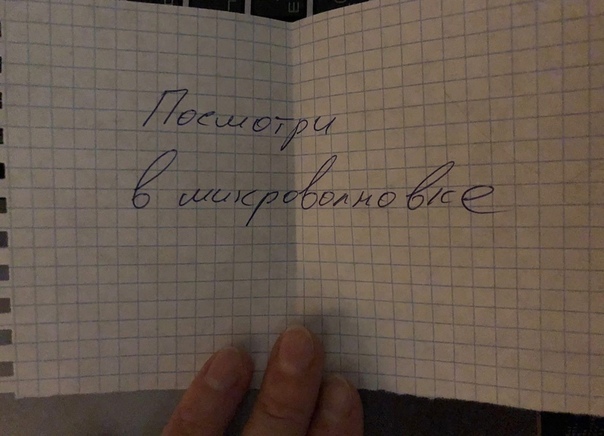 Посмотри
в микроволновке